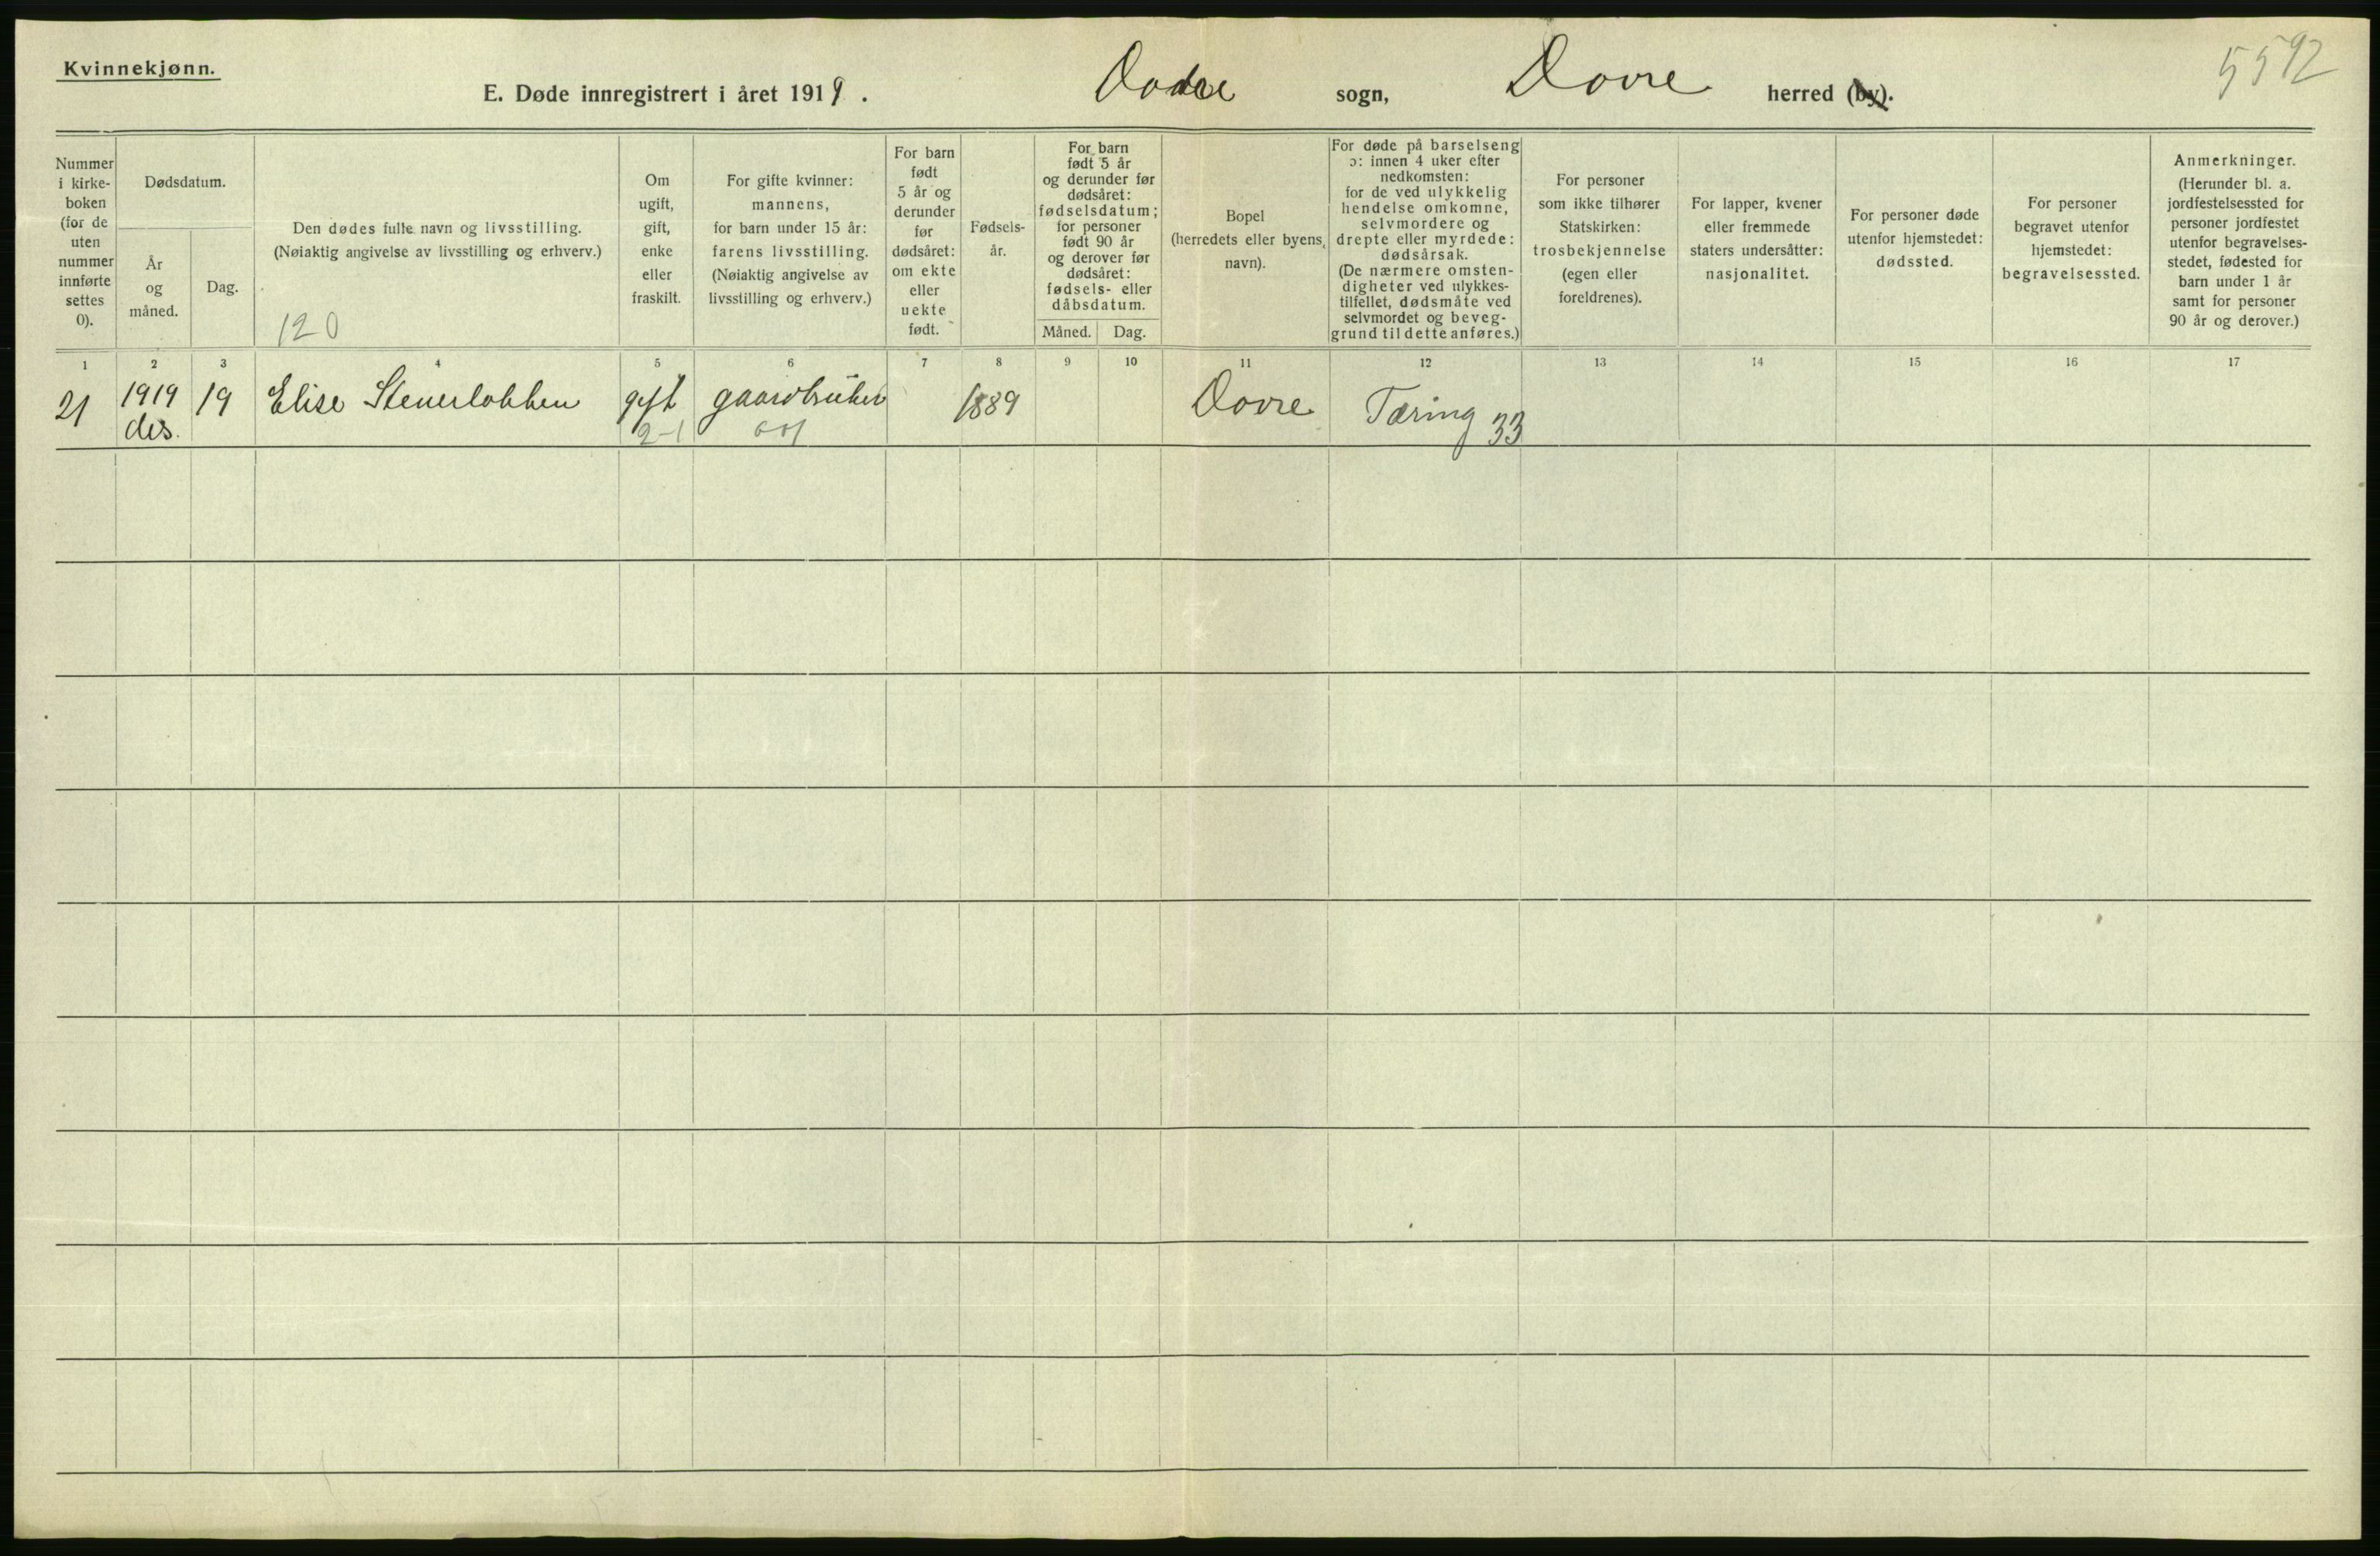 Kvinnekjønn.
5592
E. Døde innregistrert i året 1919. Dovre sogn, Dovre herred (by).
Nummer
i kirke-
boken
(for de
uten
nummer
innførte
settes
0).
Dødsdatum.
År
og
måned.
Dag.
Den dødes fulle navn og livsstilling.
(Nøiaktig angivelse av livsstilling og erhverv.)
120
Om
ugift,
gift,
enke
eller
fraskilt.
For gifte kvinner:
mannens,
for barn under 15 år:
farens livsstilling.
(Nøiaktig angivelse av
livsstilling og erhverv.)
For barn
født
5 år og
derunder
før
dødsåret:
om ekte
eller
uekte
født.
Fødsels-
år.
For barn
født 5 år
og derunder før
dødsåret:
fødselsdatum;
for personer
født 90 år
og derover før
dødsåret:
fødsels- eller
dåbsdatum.
Måned. Dag.
Bopel
(herredets eller byens
navn).
For døde på barselseng
ɔ: innen 4 uker efter
nedkomsten:
for de ved ulykkelig
hendelse omkomne,
selvmordere og
drepte eller myrdede:
dødsårsak.
(De nærmere omsten-
digheter ved ulykkes-
tilfellet, dødsmåte ved
selvmordet og beveg-
grund til dette anføres.)
For personer
som ikke tilhører
Statskirken:
trosbekjennelse
(egen eller
foreldrenes).
For lapper, kvener
eller fremmede
staters undersåtter:
nasjonalitet.
For personer døde
utenfor hjemstedet:
dødssted.
For personer
begravet utenfor
hjemstedet:
begravelsessted.
Anmerkninger.
(Herunder bl. a.
jordfestelsessted for
personer jordfestet
utenfor begravelses-
stedet, fødested for
barn under 1 år
samt for personer
90 år og derover.)
1 2 3 4 5 6 7 8 9 10 11 12 13 14 15 16 17
21 1919 19 Elise Stenerløkken gift gaardbruker 1889 Dovre Tæring 33
des. 2-1